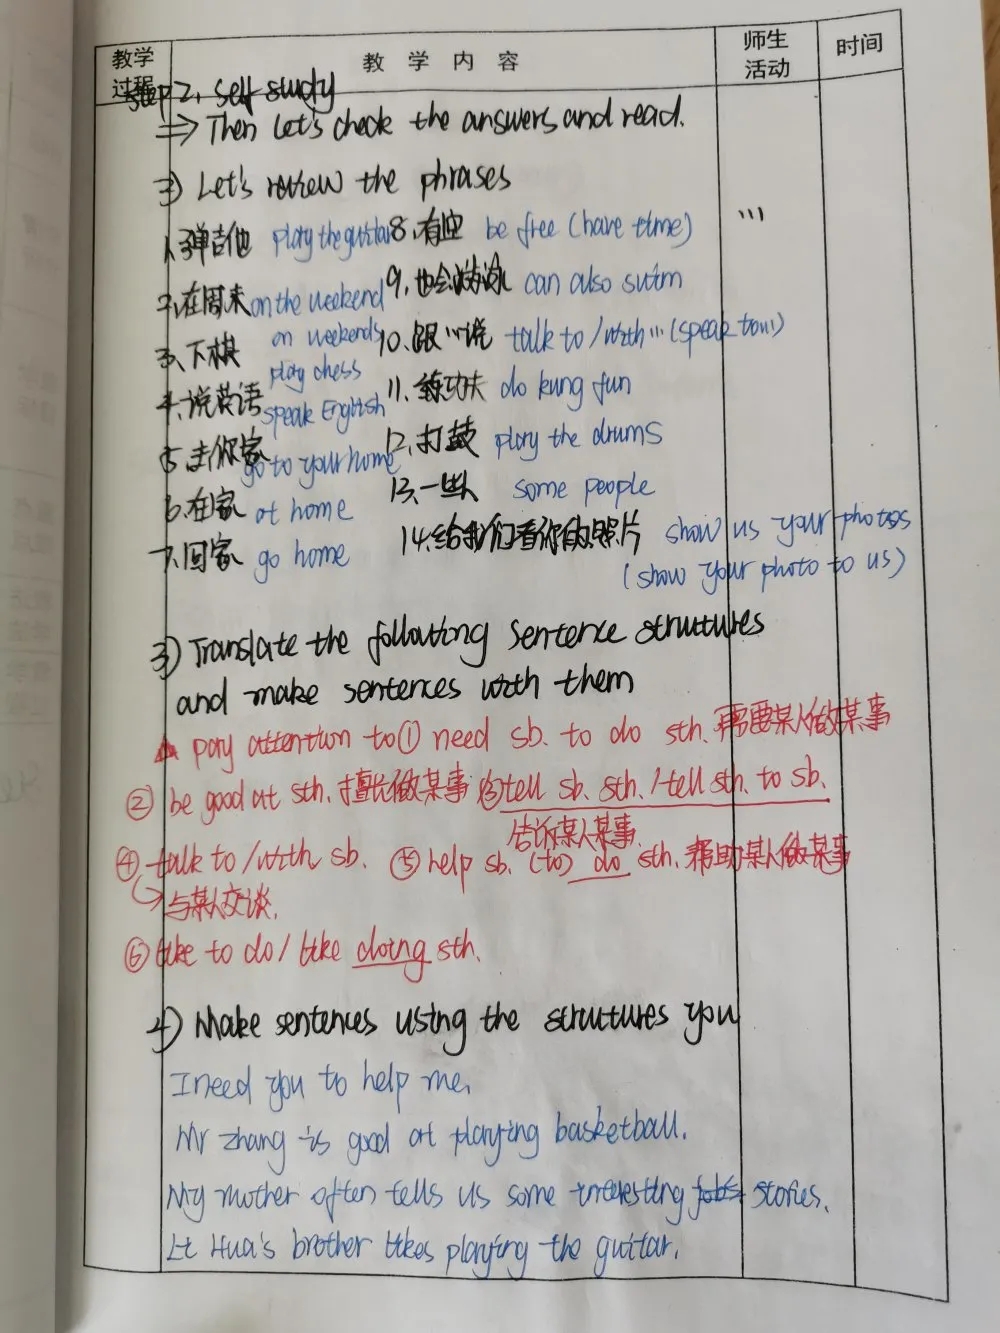 教学过程 教 学 内 容 师生活动 时间
step 2. self study
⇒ Then let's check the answers and read.
3) Let's review the phrases
1、弹吉他 play the guitar 8、有空 be free (have time) ...
2、在周末 on the weekend 9、也会游泳 can also swim
on weekends
3、下棋 play chess 10、跟…说 talk to / with … (speak to…)
4、说英语 speak English 11、练功夫 do kung fun
5、去你家 go to your home 12、打鼓 play the drums
6、在家 at home 13、一些人 some people
7、回家 go home 14、给我们看你的照片 show us your photos
(show your photo to us)
3) Translate the following sentence structures
and make sentences with them
pay attention to ① need sb. to do sth. 需要某人做某事
② be good at sth. 擅长做某事 ③ tell sb. sth. / tell sth. to sb.
告诉某人某事
④ talk to / with sb. ⑤ help sb. (to) do sth. 帮助某人做某事
→ 与某人交谈.
⑥ like to do / like doing sth.
4) Make sentences using the structures you
I need you to help me.
Mr zhang is good at playing basketball.
My mother often tells us some interesting stories.
Li Hua's brother likes playing the guitar.